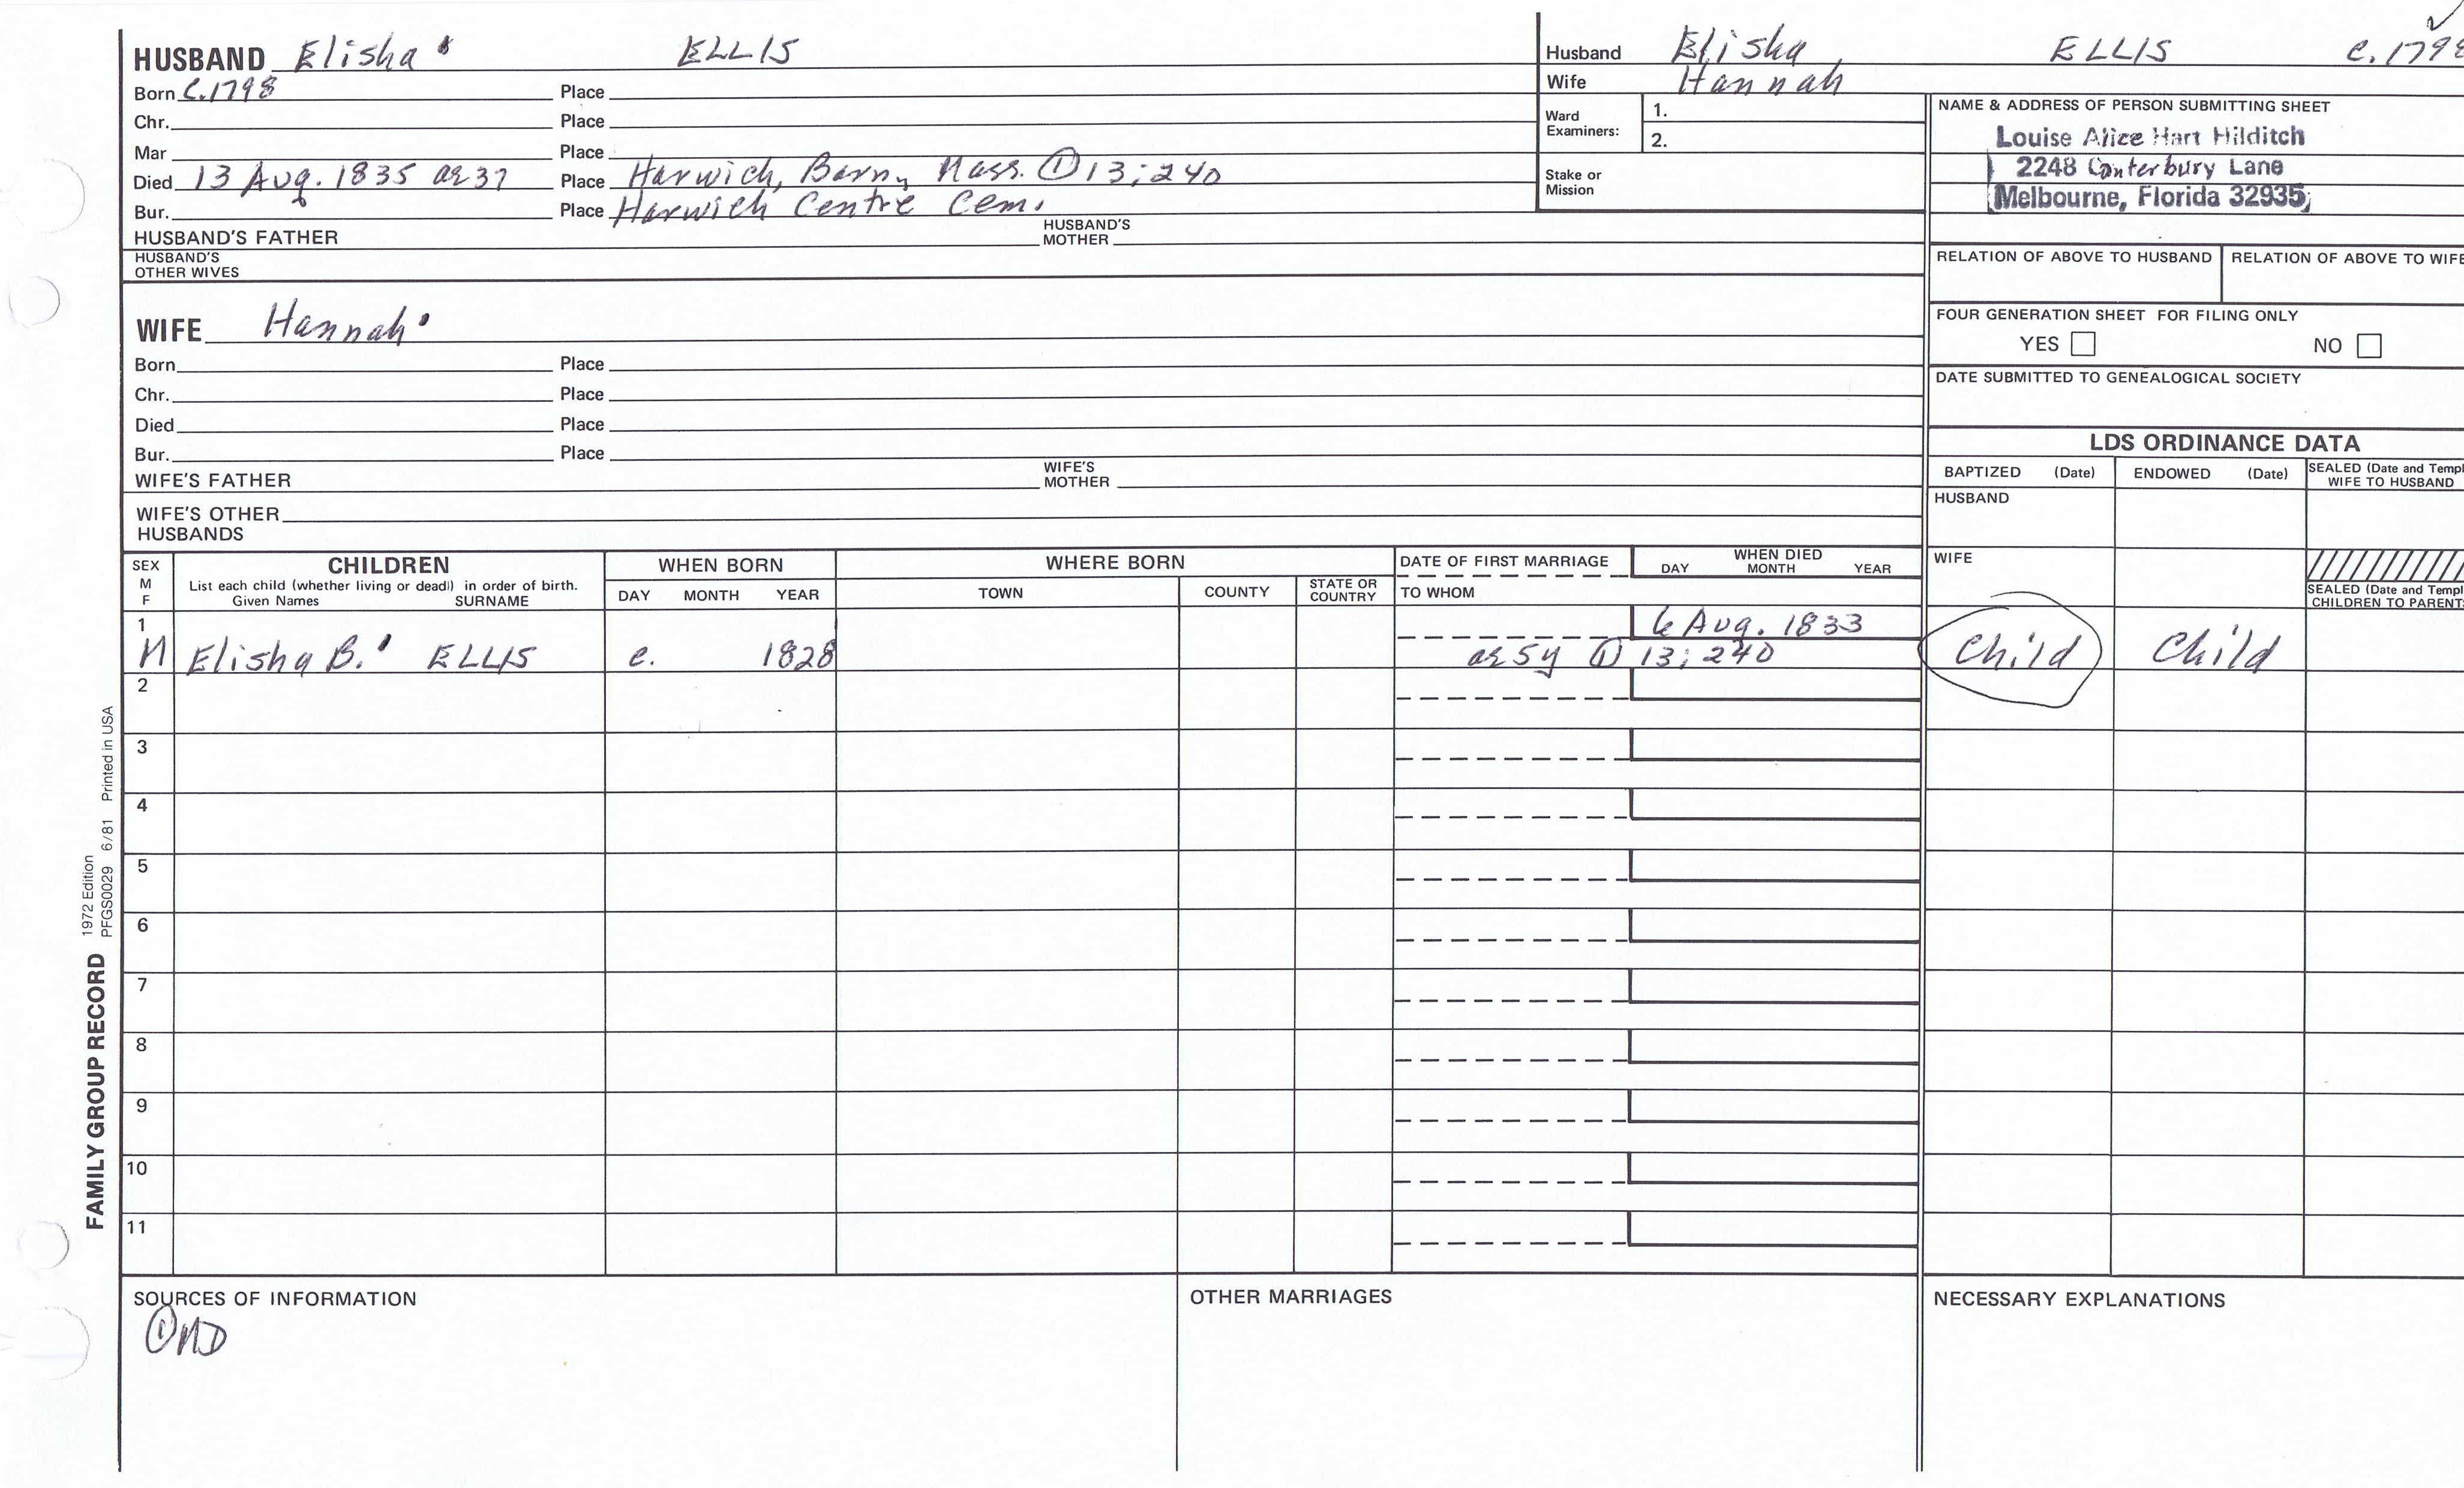 HUSBAND Elisha ELLIS
Born c.1798 Place
Chr. Place
Mar Place
Died 13 Aug. 1835 ae 37 Place Harwich, Barn, Mass. ① 13:240
Bur. Place Harwich Centre Cem.
HUSBAND'S FATHER HUSBAND'S MOTHER
HUSBAND'S OTHER WIVES
WIFE Hannah
Born Place
Chr. Place
Died Place
Bur. Place
WIFE'S FATHER WIFE'S MOTHER
WIFE'S OTHER HUSBANDS
Husband Elisha ELLIS c.1798
Wife Hannah
Ward Examiners: 1.
2.
Stake or Mission
NAME & ADDRESS OF PERSON SUBMITTING SHEET
Louise Alice Hart Hilditch
2248 Canterbury Lane
Melbourne, Florida 32935
RELATION OF ABOVE TO HUSBAND RELATION OF ABOVE TO WIFE
FOUR GENERATION SHEET FOR FILING ONLY
YES NO
DATE SUBMITTED TO GENEALOGICAL SOCIETY
LDS ORDINANCE DATA
BAPTIZED (Date) ENDOWED (Date) SEALED (Date and Templ
WIFE TO HUSBAND
HUSBAND
WIFE
SEALED (Date and Templ
CHILDREN TO PARENTS
SEX M F
CHILDREN
List each child (whether living or dead) in order of birth.
Given Names SURNAME
WHEN BORN
DAY MONTH YEAR
WHERE BORN
TOWN COUNTY STATE OR COUNTRY
DATE OF FIRST MARRIAGE
TO WHOM
WHEN DIED
DAY MONTH YEAR
1 6 Aug. 1833
M Elisha B. ELLIS c. 1828 ae 5y ① 13:240 Child Child
2
3
4
5
6
7
8
9
10
11
SOURCES OF INFORMATION OTHER MARRIAGES NECESSARY EXPLANATIONS
① MD
FAMILY GROUP RECORD 1972 Edition
PFGS0029 6/81 Printed in USA